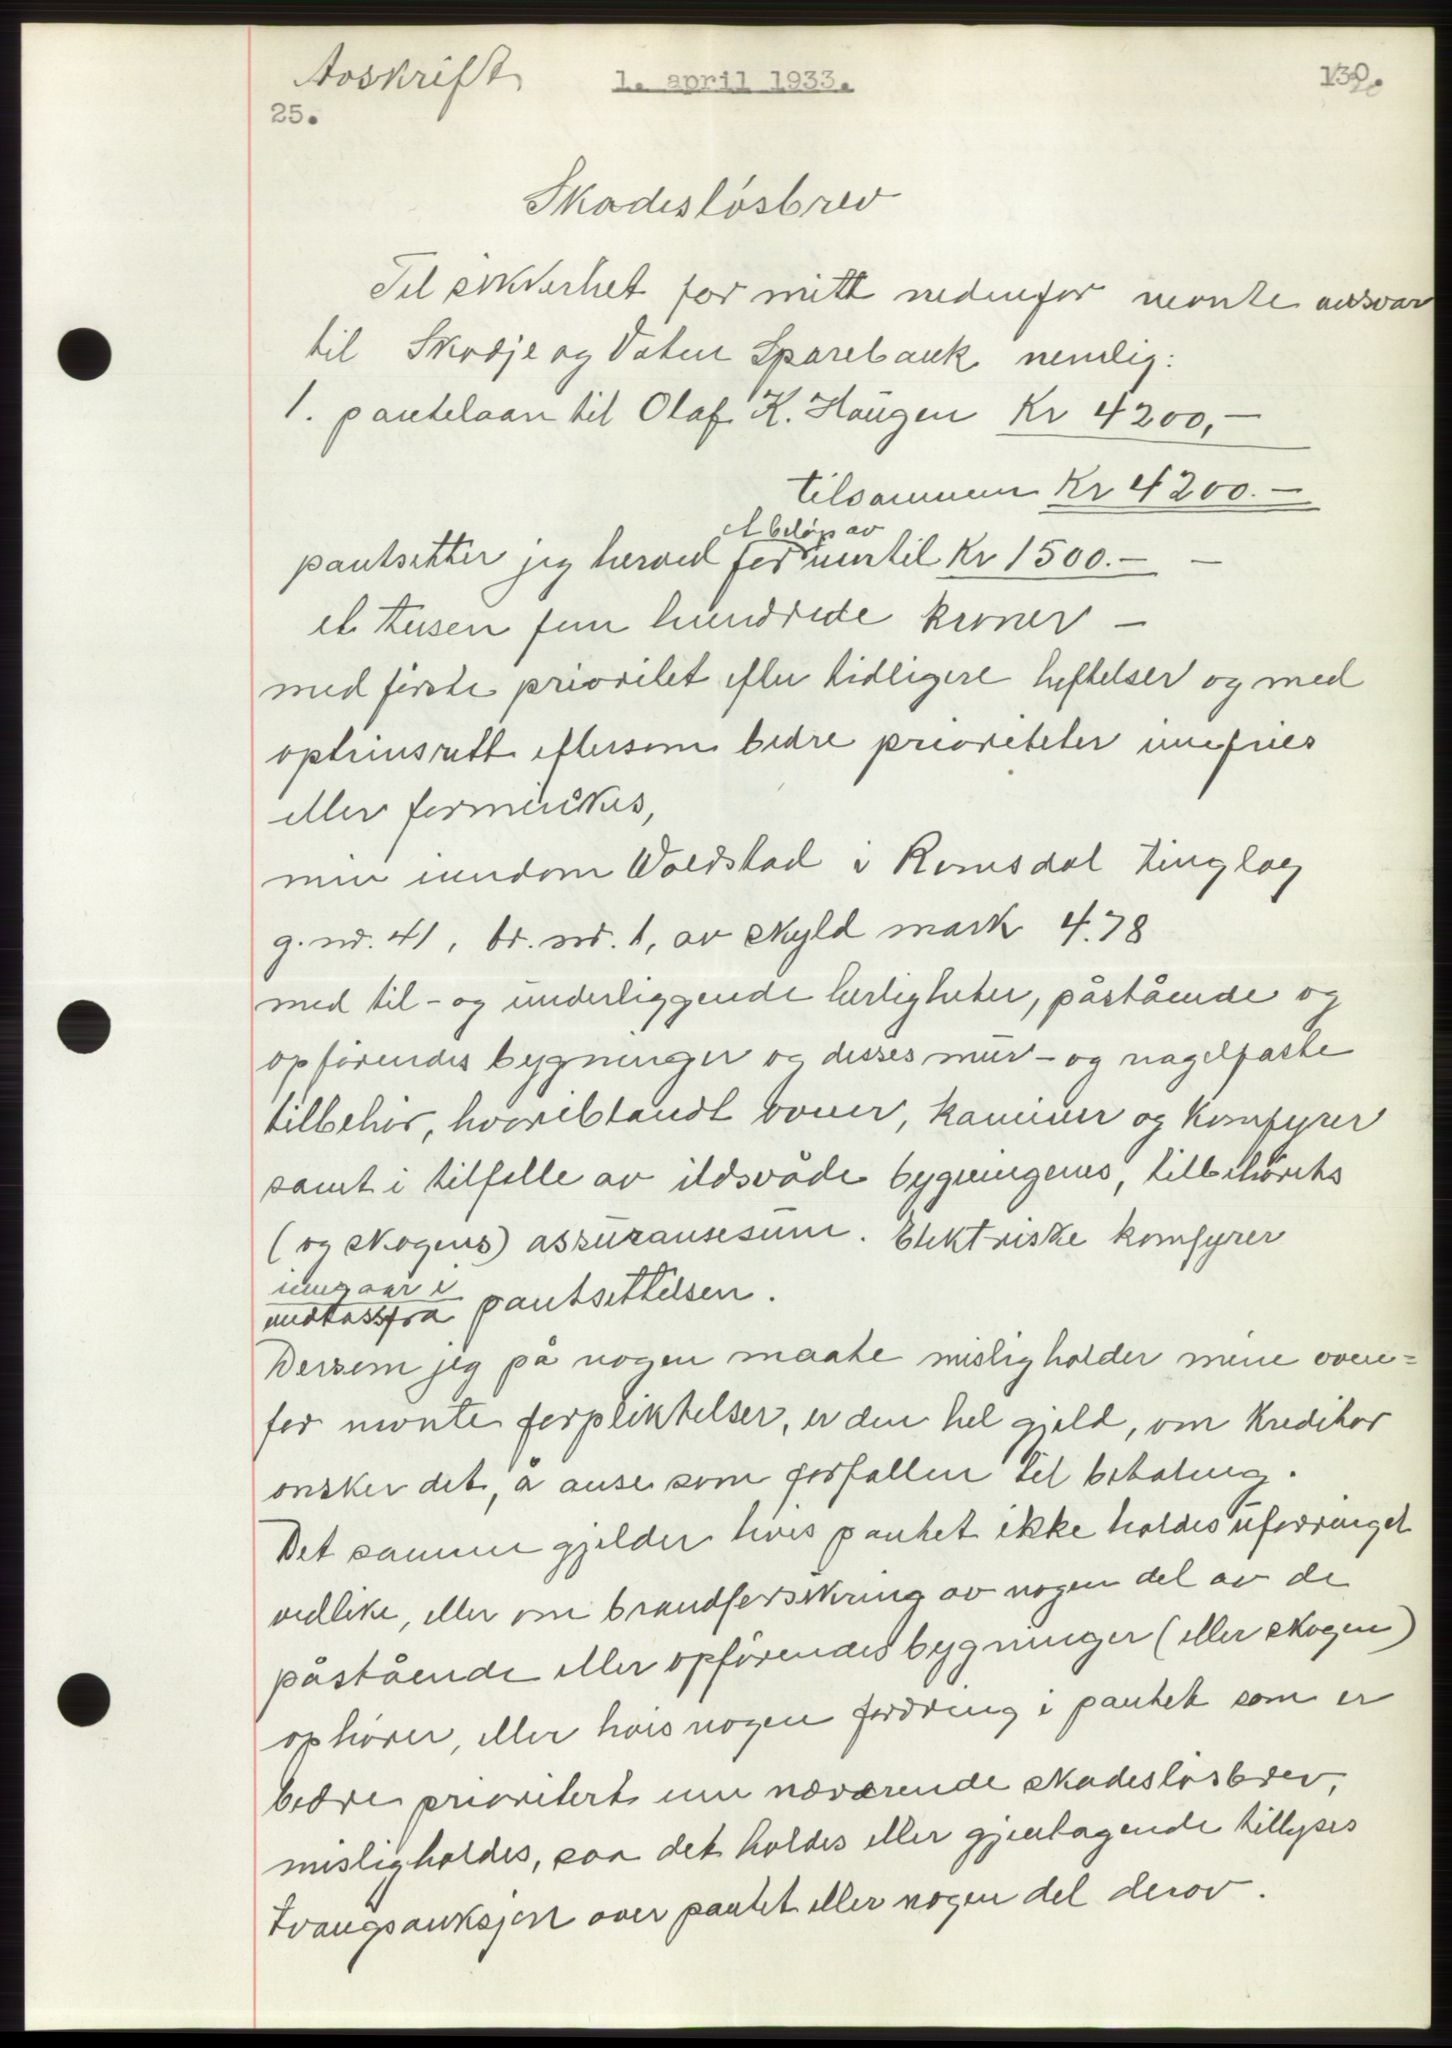 Avskrift
1. april 1933.
130.
25.
Skadesløsbrev
Til sikkerhet for mitt nedenfor nevnte ansvar
til Skodje og Vatne Sparebank nemlig:
1. pantelaan til Olaf K. Haugen Kr 4200,—
tilsammen Kr 4200.—
et beløp av
pantsetter jeg herved for inntil Kr 1500.— —
et tusen fem hundrede kroner —
med første prioritet efter tidligere heftelser og med
optrinsrett eftersom bedre prioriteter innfries
eller forminskes,
min eiendom Woldstad i Romsdal tinglag
g. nr. 41, br. nr. 1, av skyld mark 4.78
med til- og underliggende herligheter, påstående og
opførendes bygninger og disses mur- og nagelfaste
tilbehør, hvoriblandt ovner, kaminer og komfyrer
samt i tilfelle av ildsvåde bygningenes, tilbehørets
(og skogens) assuransesum. Elektriske komfyrer
inngaar i
undtas fra pantsettelsen.
Dersom jeg på nogen maate misligholder mine oven=
for nevnte forpliktelser, er den hel gjeld, om kreditor
ønsker det, å anse som forfallen til betaling.
Det samme gjelder hvis pantet ikke holdes uforringet
vedlike, eller om brandforsikring av nogen del av de
påstående eller opførendes bygninger (eller skogen)
ophører, eller hvis nogen fordring i pantet som er
bedre prioritert enn nærværende skadesløsbrev,
misligholdes, saa det holdes eller gjentagende tillyses
tvangsauksjon over pantet eller nogen del derav.